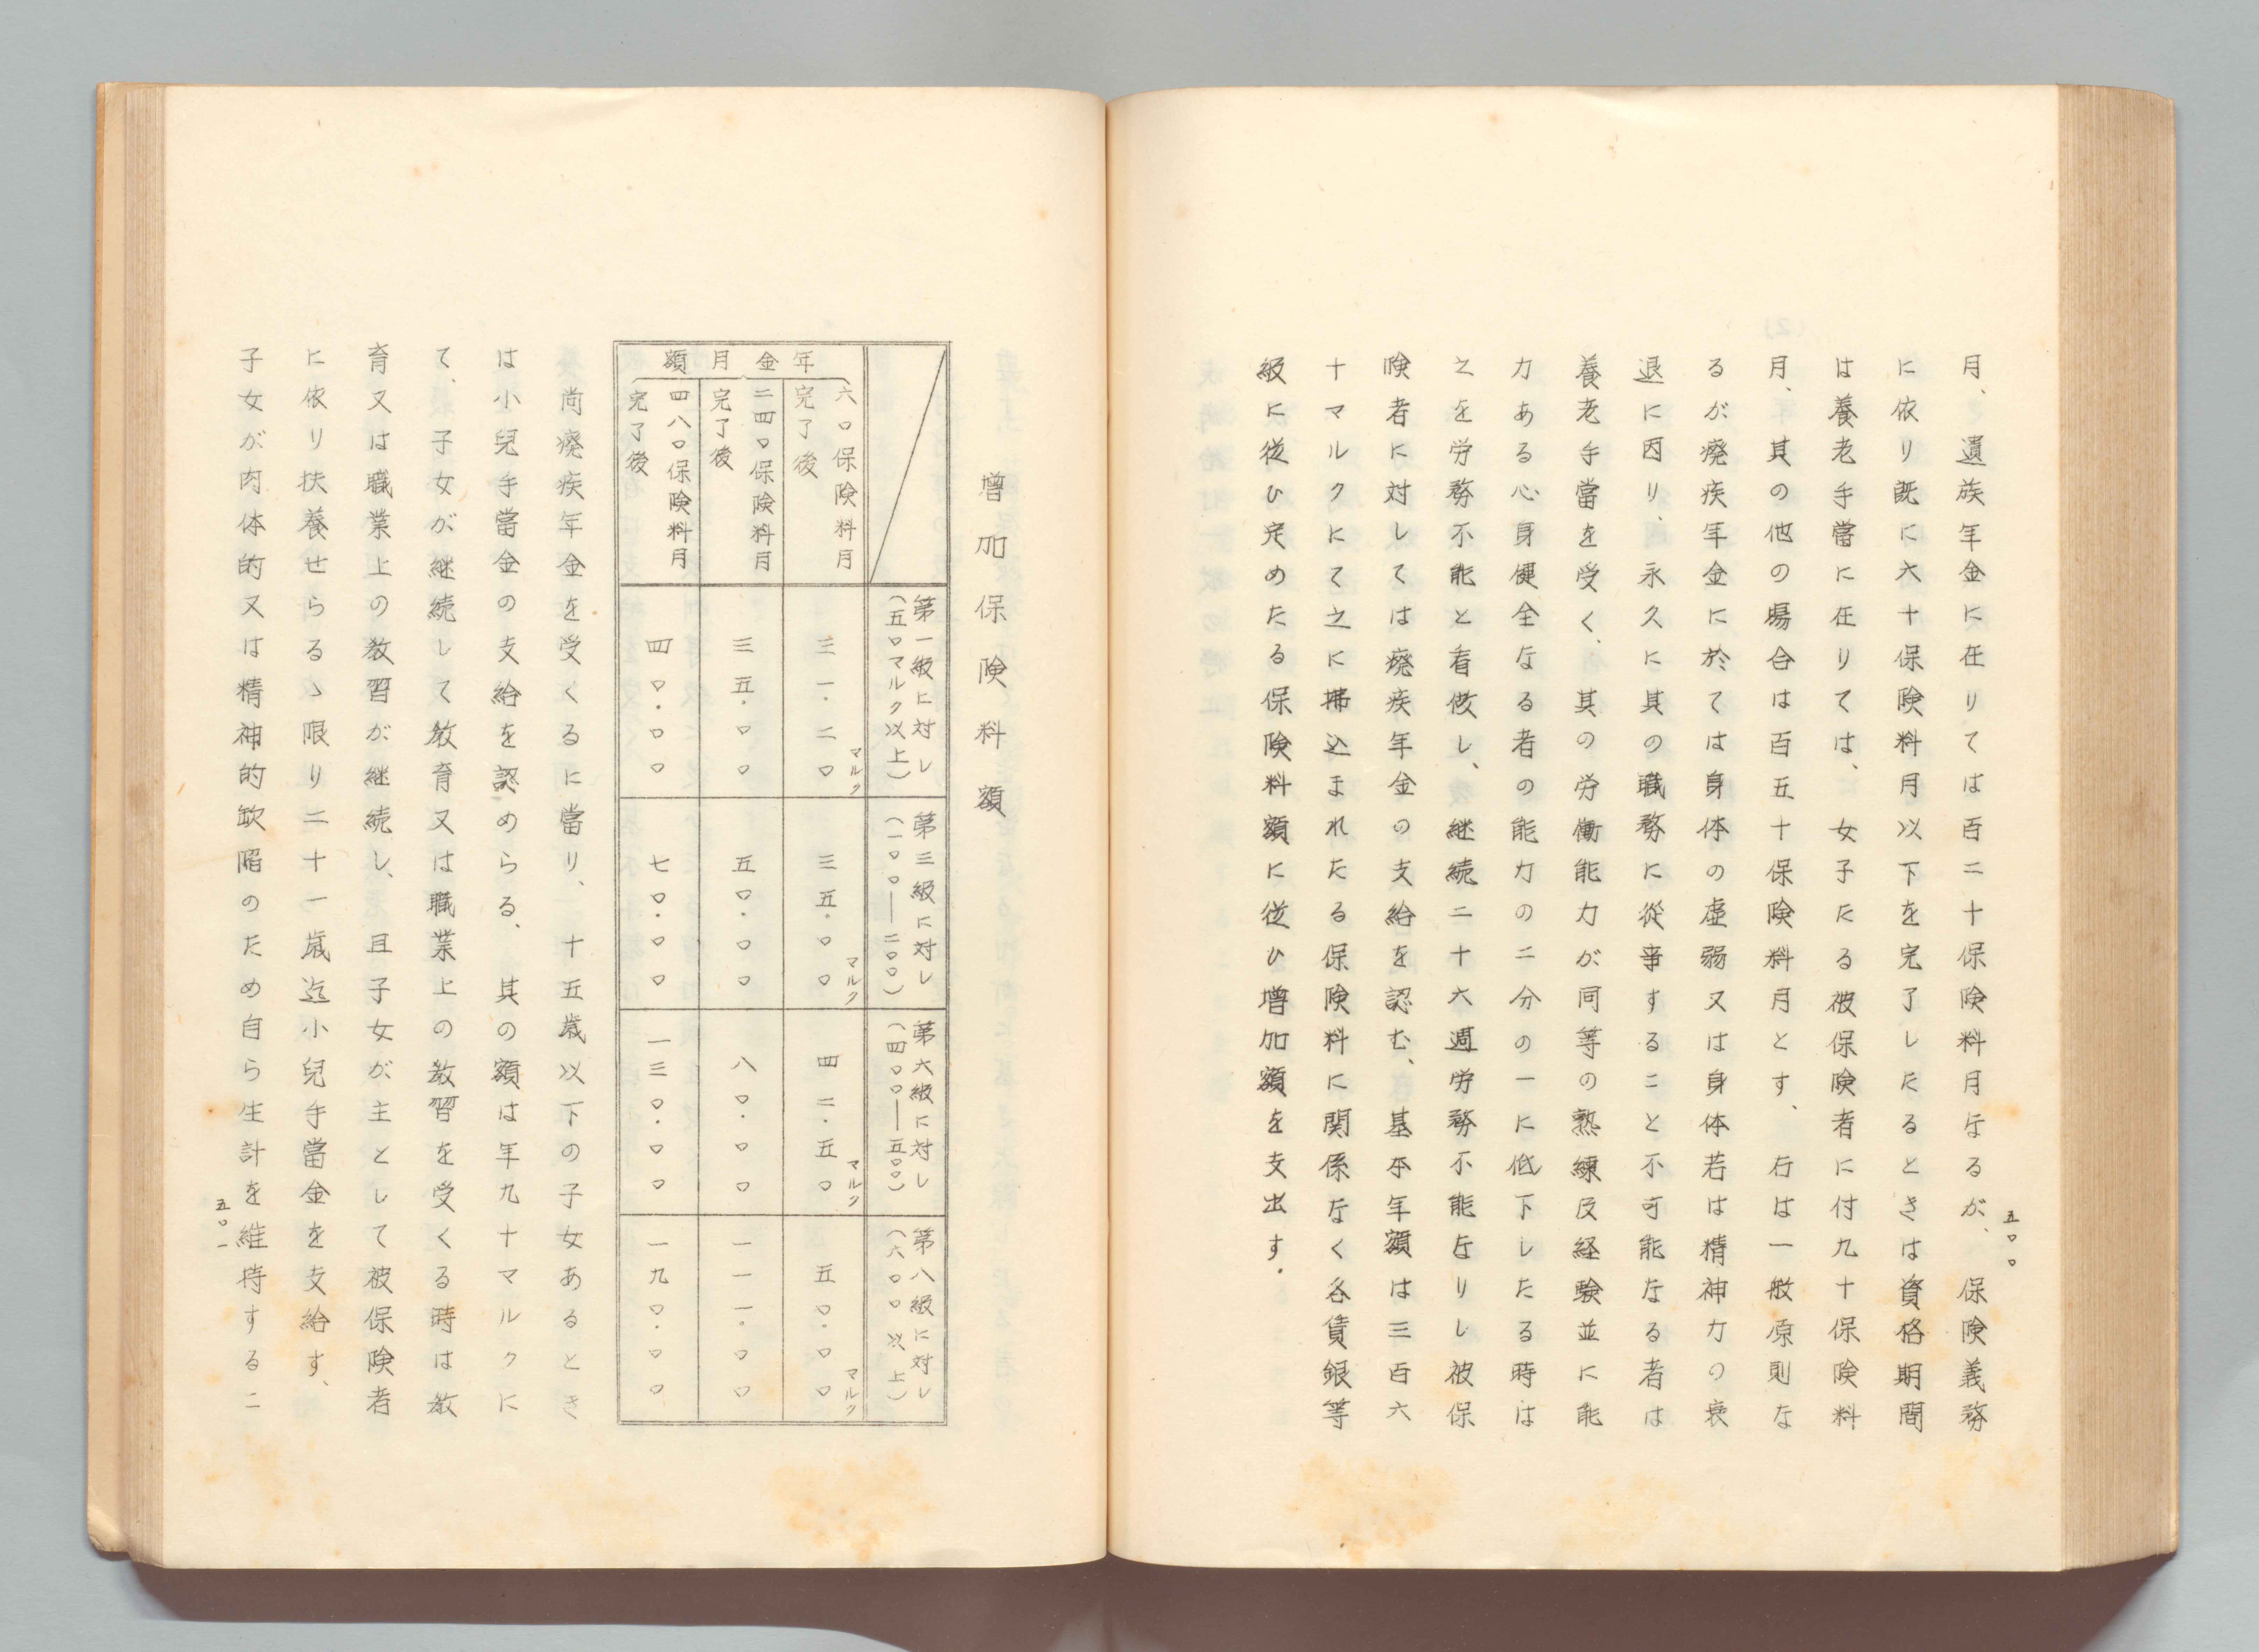 五〇〇
月、遺族年金に在りては百二十保険料月なるが、保険義務
に依り既に六十保険料月以下を完了したるときは資格期間
は養老手當に在りては、女子たる被保険者に付九十保険料
月、其の他の場合は百五十保険料月とす、右は一般原則な
るが癈疾年金に於ては身体の虚弱又は身体若は精神力の衰
退に因り、永久に其の職務に從事すること不可能なる者は
養老手當を受く、其の労働能力が同等の熟練及経験並に能
力ある心身健全なる者の能力の二分の一に低下したる時は
之を労務不能と看做し、継続二十六週労務不能なりし被保
険者に対しては癈疾年金の支給を認む、基本年額は三百六
十マルクにて之に拂込まれたる保険料に関係なく各賃銀等
級に従ひ定めたる保険料額に従ひ増加額を支出す.
増加保険料額
第一級に対し
（五〇マルク以上）
第三級に対し
（一〇〇―二〇〇）
第六級に対し
（四〇〇―五〇〇）
第八級に対し
（六〇〇以上）
年金月額
六〇保険料月
完了後
三一.二〇マルク
三五.〇〇マルク
四二.五〇マルク
五〇.〇〇マルク
二四〇保険料月
完了後
三五.〇〇
五〇.〇〇
八〇.〇〇
一一一.〇〇
四八〇保険料月
完了後
四〇.〇〇
七〇.〇〇
一三〇.〇〇
一九〇.〇〇
尚癈疾年金を受くるに當り、十五歳以下の子女あるとき
は小兒手當金の支給を認めらる、其の額は年九十マルクに
て、子女が継続して教育又は職業上の教習を受くる時は教
育又は職業上の教習が継続し、且子女が主として被保険者
に依り扶養せらるゝ限り二十一歳迄小兒手當金を支給す、
子女が肉体的又は精神的欽陷のため自ら生計を維持するこ
五〇一